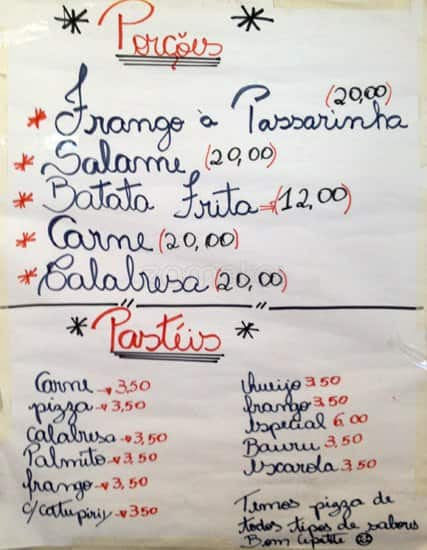 * Porções *
(20,00)
* Frango à Passarinha
* Salame (20,00)
* Batata Frita → (12,00)
* Carne (20,00)
* Calabresa (20,00)
* Pastéis *
Carne → 3,50
pizza → 3,50
calabresa → 3,50
Palmito → 3,50
frango → 3,50
c/catupiriy → 3,50
queijo 3 50
frango 3 50
especial 6,00
Bauru 3,50
escarola 3,50
Temos pizza de
todos tipos de sabores
Bom Apetite